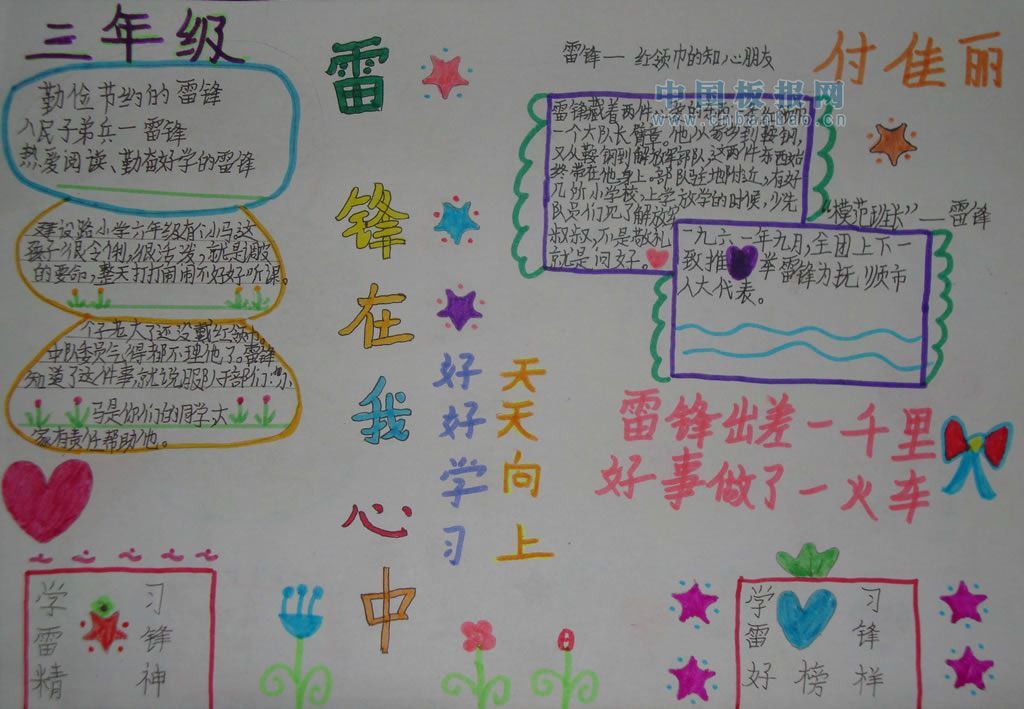 三年级
勤俭节约的雷锋
人民子弟兵—雷锋
热爱阅读、勤奋好学的雷锋
建设路小学六年级有个小马,这
孩子很伶俐,很活泼,就是调皮
的要命,整天打打闹闹不好好听课。
个子老大了还没戴红领巾。
中队委员气得都不理他了。雷锋
知道了这件事,就说服队干部们:小
马是你们的同学,大
家有责任帮助他。
雷锋在我心中
好好学习
天天向上
雷锋—红领巾的知心朋友
付佳丽
中国板报网
www.cnbanbao.cn
雷锋藏着两件心爱的
一个大队长臂章。他从家带到鞍钢,
又从鞍钢到解放军部队,这两件东西始
终带在他身上。部队驻地附近,有好
几所小学校,上学放学的时候,少先
队员们见了解放军
叔叔,不是敬礼
就是问好。
“模范班长”—雷锋
一九六一年九月,全团上下一
致推举雷锋为抚顺市
人大代表。
雷锋出差一千里
好事做了一火车
学习
雷锋
精神
学习
雷锋
好榜样